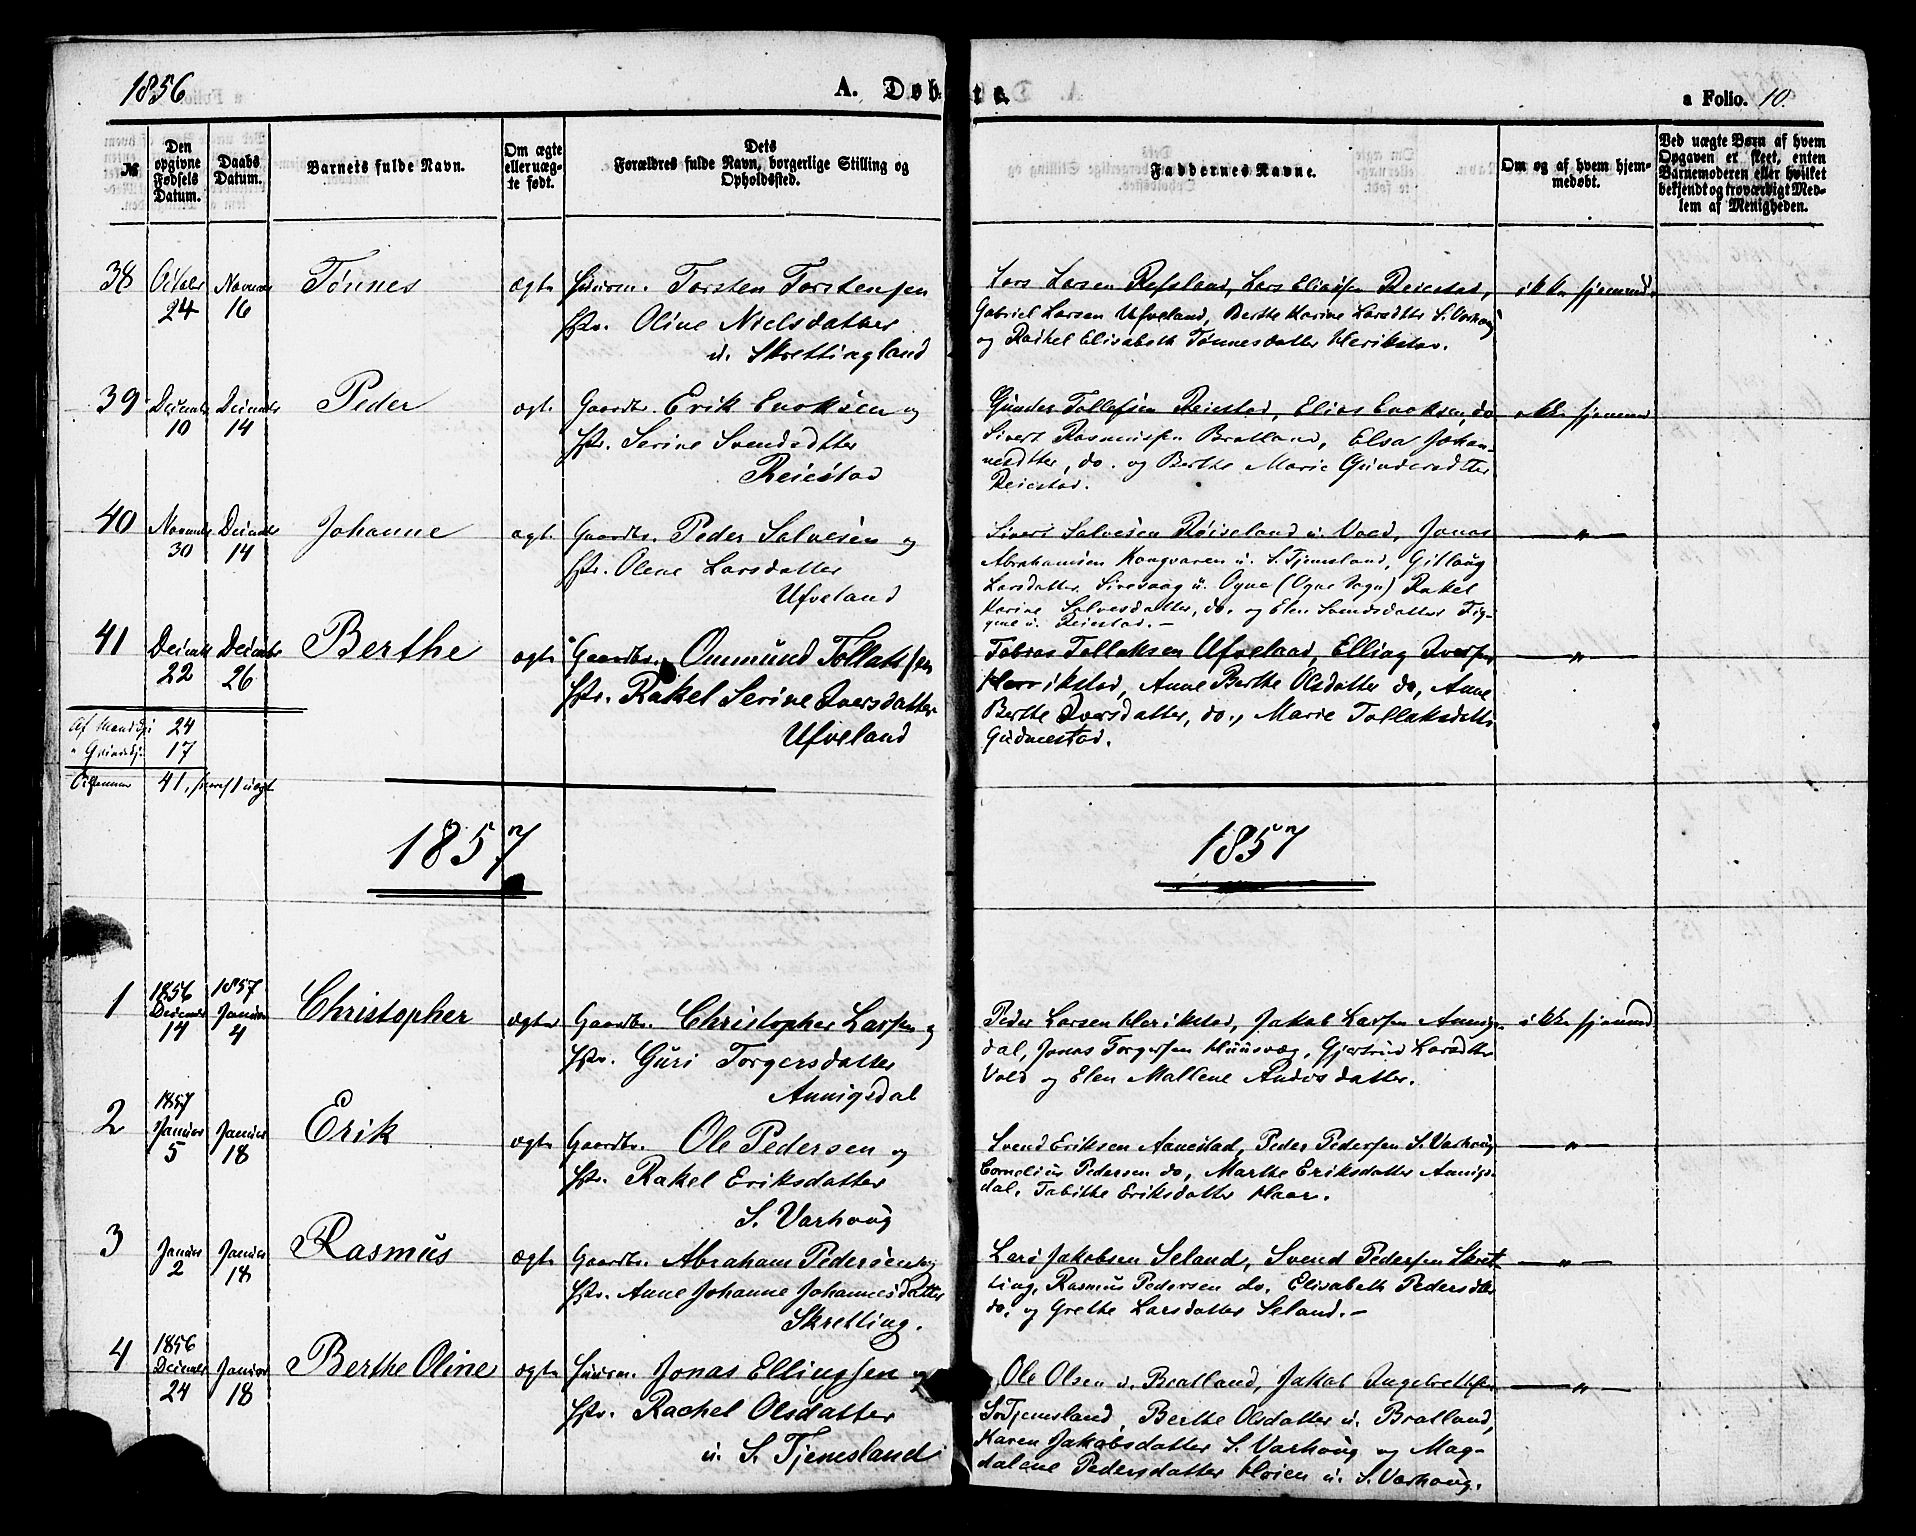 1856
A. Døbte.
a Folio. 10.
№
Den opgivne Fødsels Datum.
Daabs Datum.
Barnets fulde Navn.
Om ægte eller uægte født.
Dets Forældres fulde Navn, borgerlige Stilling og Opholdssted.
Faddernes Navne.
Om og af hvem hjemmedøbt.
Ved uægte Børn af hvem Opgaven er skeet, enten Barnemoderen eller hvilket bekjendt og troværdigt Medlem af Menigheden.
38 October 24 Novembr 16 Tønnes ægte Huusm. Torsten Torstensen
Hstr. Oline Nielsdatter
u. Skrettingland
Lars Larsen Refsland, Lars Eliassen Reiestad, ikke hjemmed.
Gabriel Larsen Ufveland, Berthe Karine Larsdtr S. Varhoug
og Rachel Elisabeth Tønnesdatter Herikstad.
39 Decembr 10 Decembr 14 Peder ægte Gaardbr. Erik Enoksen og
Hstr. Serine Svendsdtter
Reiestad
Gunder Tollefsen Reiestad, Elias Enoksen, do ikke hjemmed
Sivert Rasmussen Bratland, Elsa Johan-
nesdtter, do. og Berthe Marie Gundersdtter
Reiestad.
40 Novembr 30 Decembr 14 Johanne ægt. Gaardbr. Peder Salvesen og
Hstr. Olene Larsdatter
Ufveland
Sivert Salvesen Røiseland u. Vold, Jonas — „ —
Abrahamsen Kongvaren u. S. Tjemsland, Gitlaug
Larsdatter Sirevaag u. Ogne (Ogne Sogn) Rakel
Karine Salvesdatter, do. og Elen Svendsdatter
u. Reiestad. —
41 Decembr 22 Decembr 26 Berthe ægte Gaardbr. Ommund Tollaksen
Hstr. Rakel Serine Iversdatter
Ufveland
Tobias Tollaksen Ufveland, Elling Iversen — „ —
Herrikstad, Anne Berthe Olsdatter do, Anne
Berthe Iversdatter, do., Marie Tollaksdatter
Gudmestad.
Af Mandkj. 24
" Qvindekj. 17
Tilsammen 41, hvoraf 1 uægte
1857
1857
1 1856 Decembr 14 1857 Januar 4 Christopher ægte Gaardbr. Christopher Larsen og
Hstr. Guri Torgersdatter
Annigsdal
Peder Larsen Herikstad, Jakob Larsen Annigs- ikke hjemmed
dal, Jonas Torgersen Huusvæg, Gjertrud Larsdtter
Vold og Elen Mallene Andersdatter.
2 1857 Januar 5 Januar 18 Erik ægte Gaardbr. Ole Pedersen og
Hstr. Rakel Eriksdatter
S. Varhoug
Svend Eriksen Aanestad, Peder Pedersen S. Varhoug — „ —
Cornelius Pedersen do, Marthe Eriksdatter Annigs-
dal, Tabithe Eriksdatter Haar.
3 Januar 2 Januar 18 Rasmus ægte Gaardbr. Abraham Pedersen og
Hstr. Anne Johanne Johannesdatter
Skretting.
Lars Jakobsen Seland, Svend Pedersen Skret- — „ —
ting, Rasmus Pedersen do. Elisabeth Pedersdtr
do. og Grethe Larsdatter Seland. —
4 1856 Decembr 24 Januar 18 Berthe Oline ægte Huusm. Jonas Ellingsen og
Hstr. Rachel Olsdatter
u. S. Tjemsland
Ole Olsen u. Bratland, Jakob Ingebretsen — „ —
S. Tjemsland, Berthe Olsdatter u. Bratland,
Karen Jakobsdatter S. Varhoug og Mag-
dalene Pedersdatter Høien u. S. Varhoug.